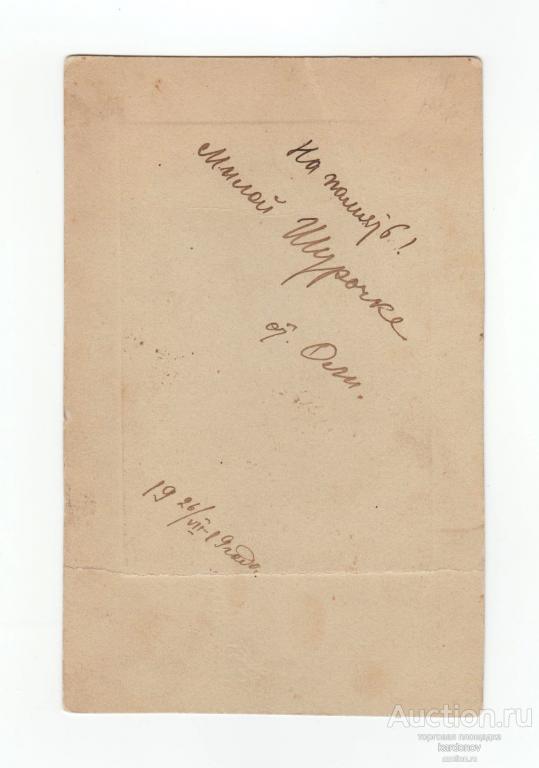 На память!
Милой
Шурочке
от. Оли.
19 26/VII 19 года.
Auction.ru
торговая площадка
kardonov
auction.ru